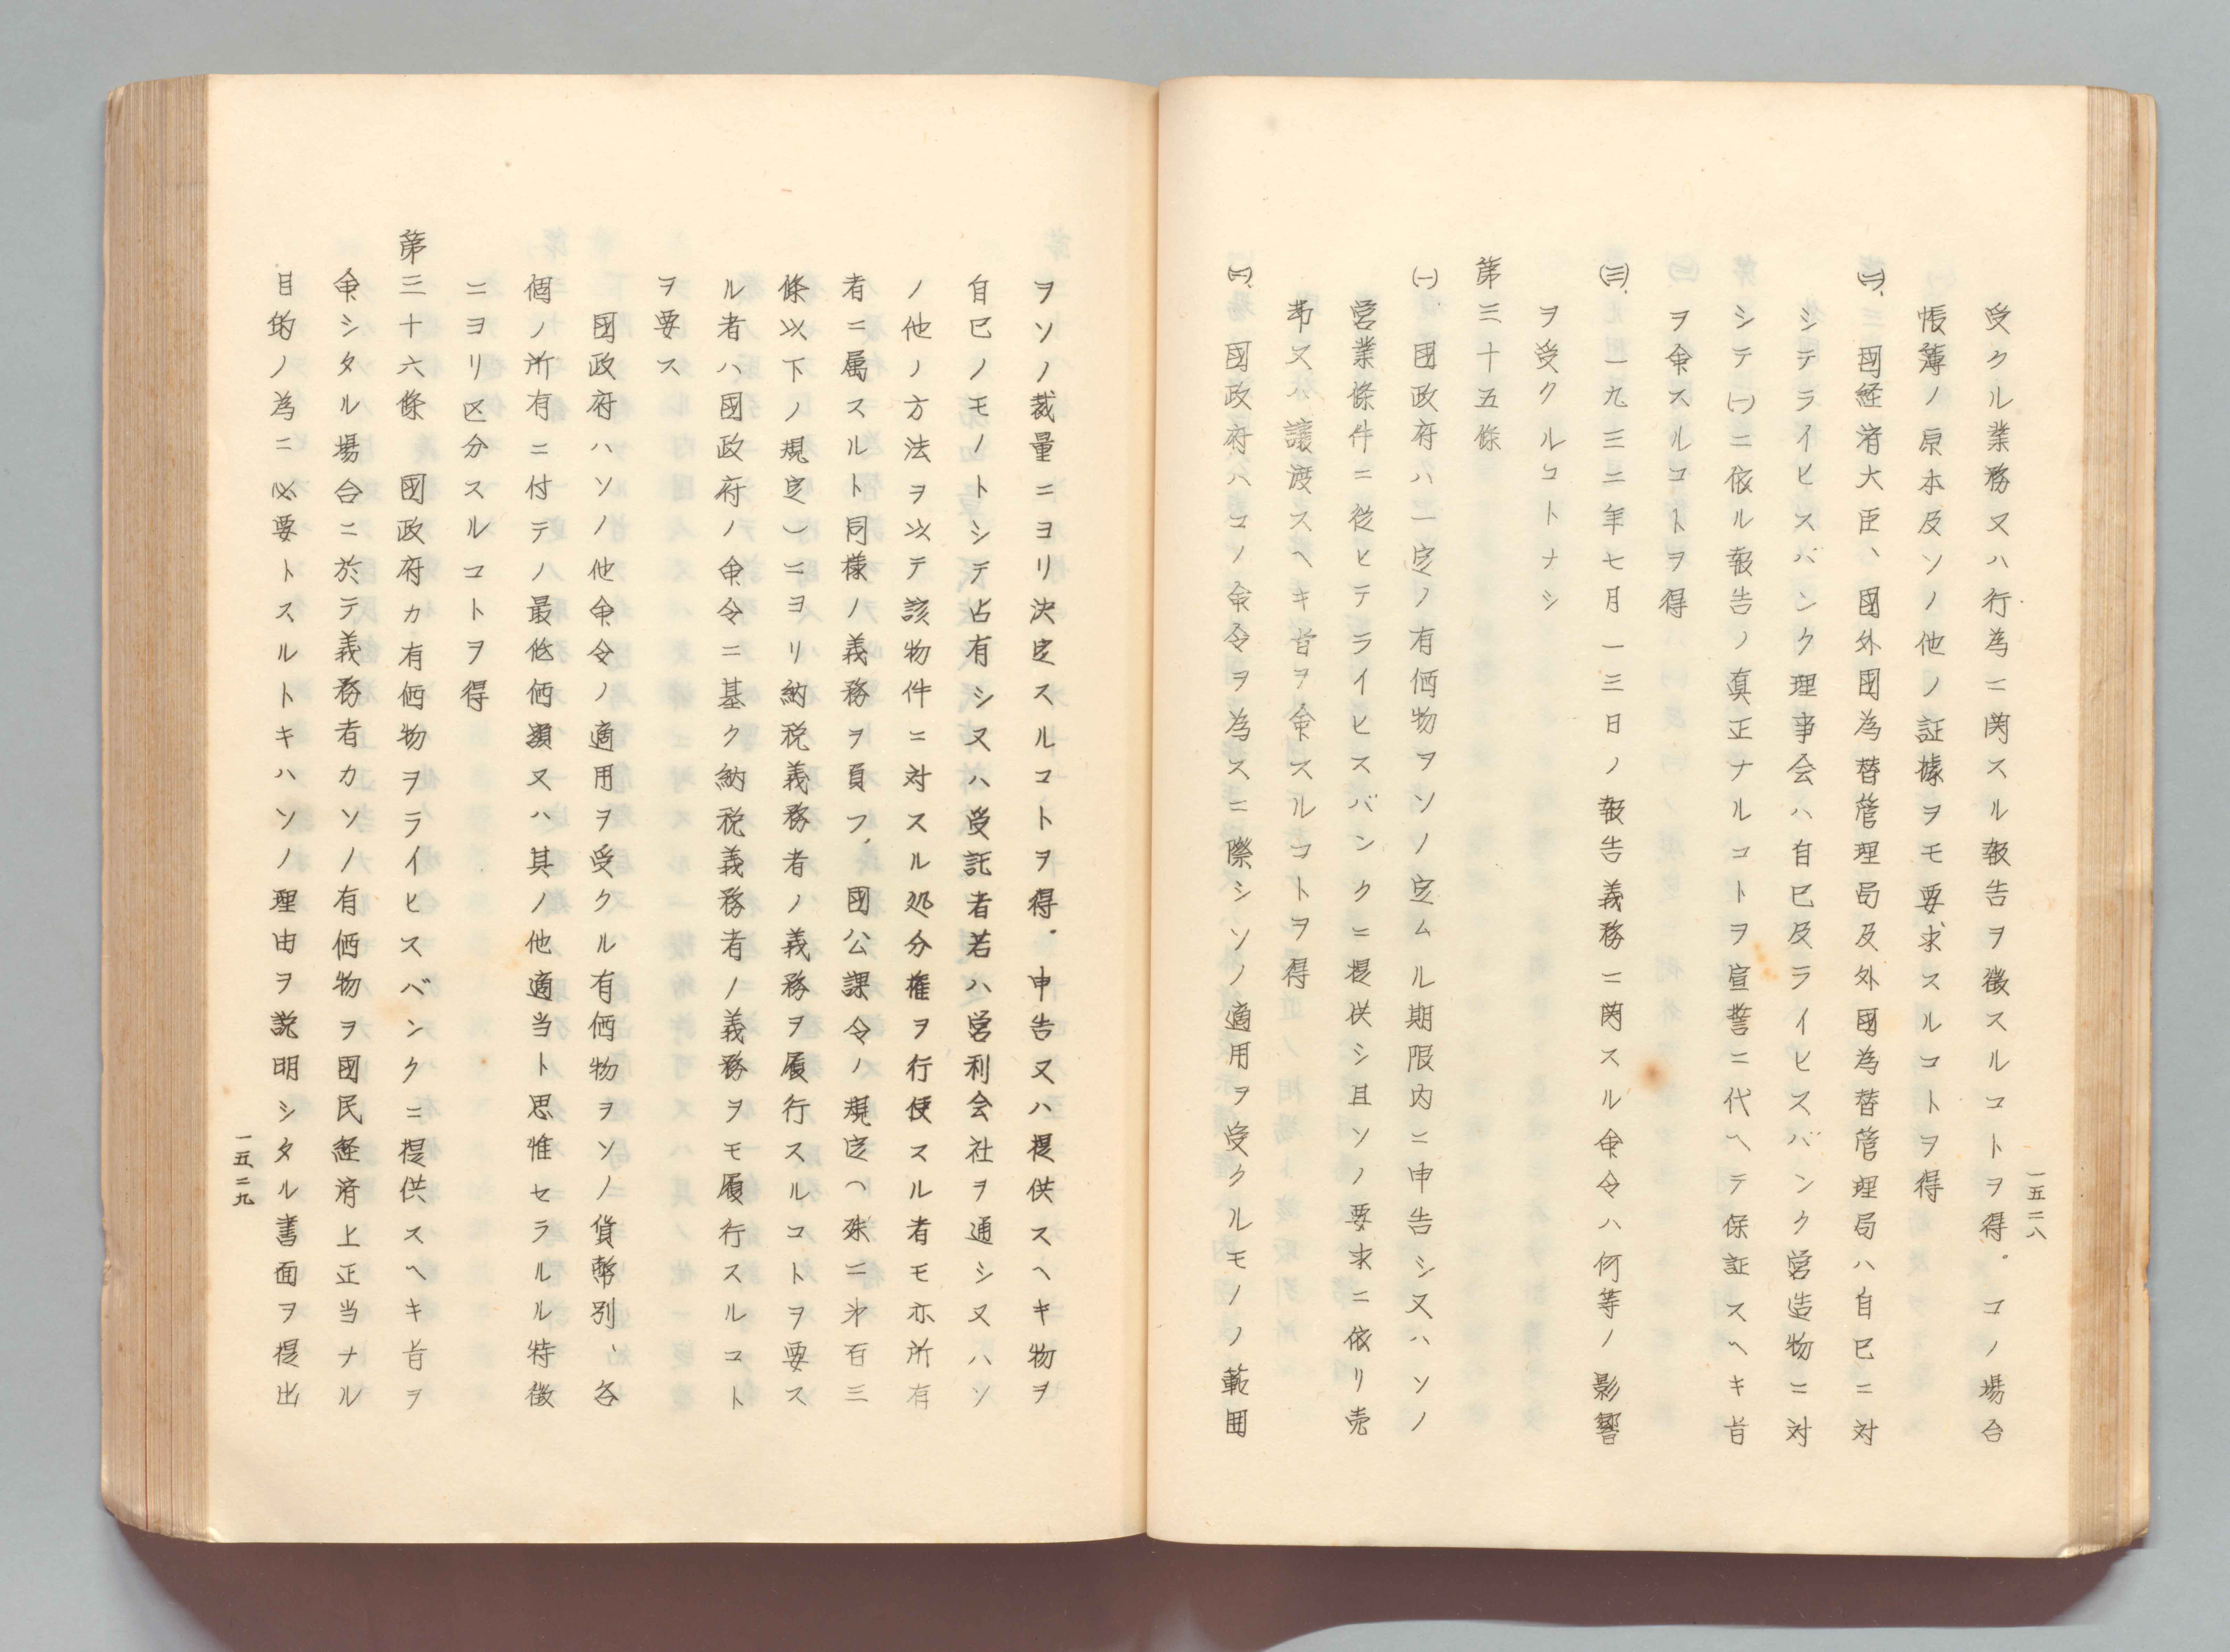 一五二八
受クル業務又ハ行為ニ関スル報告ヲ徴スルコトヲ得．コノ場合
帳薄ノ原本及ソノ他ノ証據ヲモ要求スルコトヲ得
㈡、國経済大臣、國外國為替管理局及外國為替管理局ハ自己ニ対
シテライヒスバンク理事会ハ自己及ライヒスバンク営造物ニ対
シテ㈠ニ依ル報告ノ眞正ナルコトヲ宣誓ニ代ヘテ保証スヘキ旨
ヲ命スルコトヲ得
㈢、一九三二年七月一三日ノ報告義務ニ関スル命令ハ何等ノ影響
ヲ受クルコトナシ
第三十五條
㈠、國政府ハ一定ノ有価物ヲソノ定ムル期限内ニ申告シ又ハソノ
営業條件ニ從ヒテライヒスバンクニ提供シ且ソノ要求ニ依リ売
却又ハ讓渡スヘキ旨ヲ命スルコトヲ得
㈡、國政府ハコノ命令ヲ為スニ際シソノ適用ヲ受クルモノノ範囲
ヲソノ裁量ニヨリ決定スルコトヲ得．申告又ハ提供スヘキ物ヲ
自己ノモノトシテ占有シ又ハ受託者若ハ営利会社ヲ通シ又ハソ
ノ他ノ方法ヲ以テ該物件ニ対スル処分権ヲ行使スル者モ亦所有
者ニ属スルト同様ノ義務ヲ負フ、國公課令ノ規定（殊ニ第百三
條以下ノ規定）ニヨリ納税義務者ノ義務ヲ履行スルコトヲ要ス
ル者ハ國政府ノ命令ニ基ク納税義務者ノ義務ヲモ履行スルコト
ヲ要ス
國政府ハソノ他命令ノ適用ヲ受クル有価物ヲソノ貨幣別、各
個ノ所有ニ付テノ最低価額又ハ其ノ他適当ト思惟セラルル特徴
ニヨリ区分スルコトヲ得
第三十六條　國政府カ有価物ヲライヒスバンクニ提供スヘキ旨ヲ
命シタル場合ニ於テ義務者カソノ有価物ヲ國民経済上正当ナル
目的ノ為ニ必要トスルトキハソノ理由ヲ説明シタル書面ヲ提出
一五二九